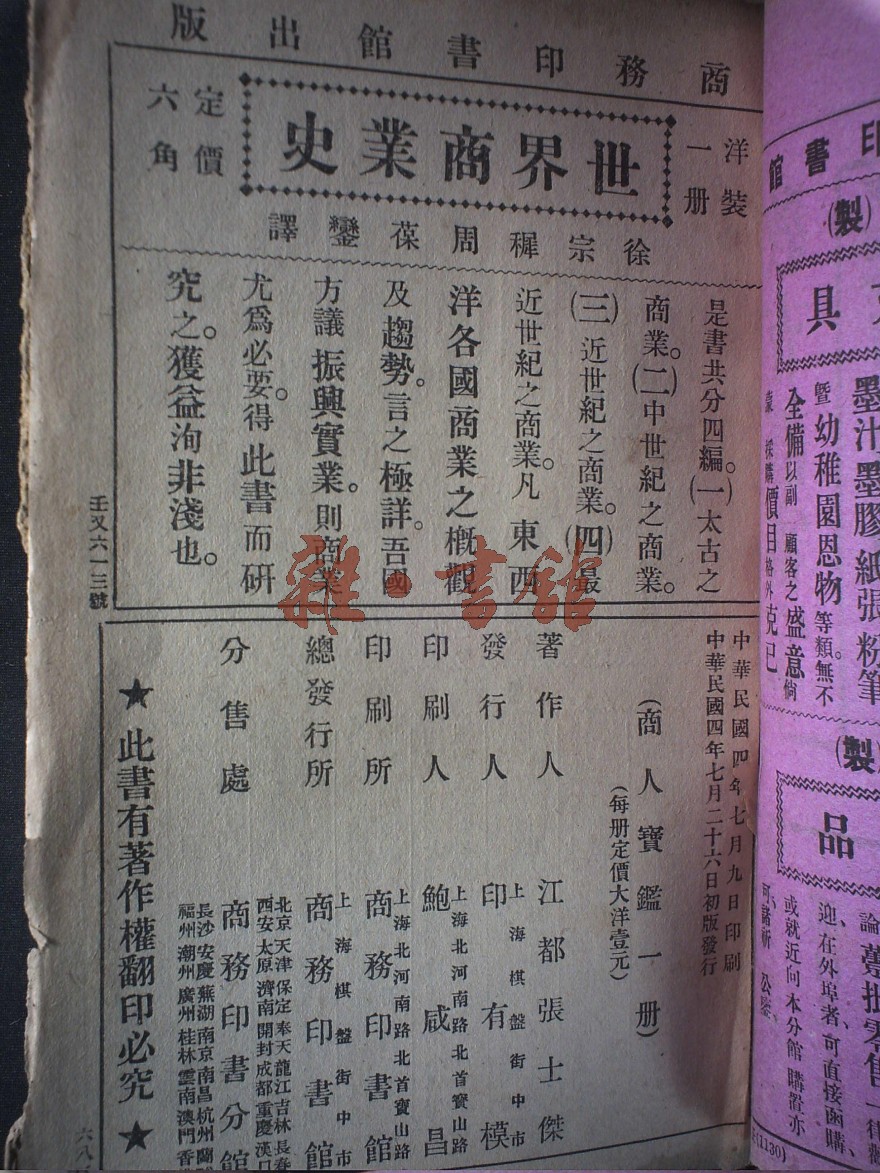 商務印書館出版
洋裝
一册
世界商業史
定價
六角
徐宗穉周葆鑾譯
是書共分四編。(一)太古之
商業。(二)中世紀之商業。
(三)近世紀之商業。(四)最
近世紀之商業。凡東西
洋各國商業之概觀
及趨勢。言之極詳。吾國
方議振興實業。則商業
尤爲必要。得此書而研
究之。獲益洵非淺也。
壬又六一三號
中華民國四年七月九日印刷
中華民國四年七月二十六日初版發行
(商人寶鑑一册)
(每册定價大洋壹元)
著作人 江都張士傑
發行人 印有模
上海棋盤街中市
印刷人 鮑咸昌
上海北河南路北首寶山路
印刷所 商務印書館
上海北河南路北首寶山路
總發行所 商務印書館
上海棋盤街中市
分售處 商務印書分館
北京天津保定奉天龍江吉林長春
西安太原濟南開封成都重慶漢口
長沙安慶蕪湖南京南昌杭州蘭
福州潮州廣州桂林雲南澳門香
★此書有著作權翻印必究★
六八
雜·書館
印書館
(製)
具
墨汁墨膠紙張粉筆
暨幼稚園恩物等類無不
全備以副 顧客之盛意倘
蒙 採購價目格外克已
(製)
品
躉批零售一律
迎、在外埠者、可直接函購、
或就近向本分館購置亦
可、諸祈 公鑒、
(1130)